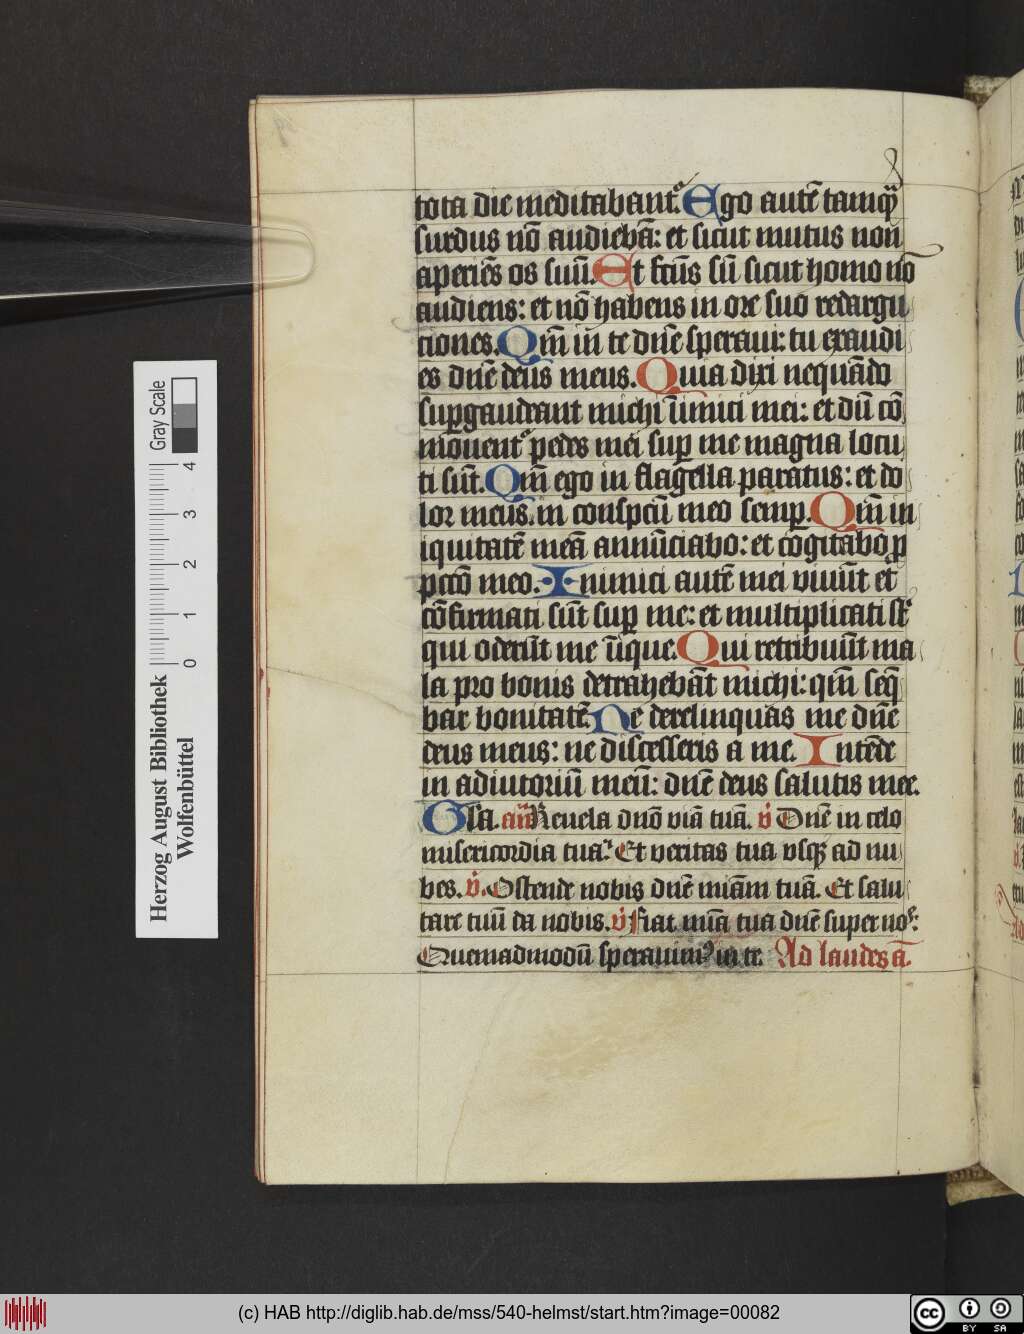 tota die meditabant᷒. Ego autē tamq̄
surdus nō audiebā: et sicut mutus non
aperiēs os suū. Et fctūs sū sicut homo nō
audiens: et nō habens in ore suo redargu
ciones. Qm̄ in te dn̄e speraui: tu exaudi
es dn̄e deus meus. Quia dixi nequādo
suꝑgaudeant michi īimici mei: et dū cō
mouent᷒ pedes mei suꝑ me magna locu
ti sūt. Qm̄ ego in flagella paratus: et do
lor meus in conspcū meo semꝑ. Qm̄ in
iquitatē meā annūciabo: et cogitabo ꝓ
pccō meo. Inimici autē mei viuūt et
cōfirmati sūt suꝑ me: et multiplicati st̄
qui oderūt me īique. Qui retribuūt ma
la pro bonis detrahebāt michi: qm̄ seq̄
bar bonitatē. Ne derelinquas me dn̄e
deus meus: ne discesseris a me. Intēde
in adiutoriū meū: dn̄e deus salutis mee.
Gl̄a. an̄ Reuela dn̄o viā tuā. v̄ Dn̄e in celo
misericordia tua. Et veritas tua vsqꝫ ad nu
bes. v̄. Ostende nobis dn̄e miām tuā. Et salu
tare tuū da nobis. v̄ Fiat mīa tua dn̄e super nos:
Quemadmodū sperauimꝰ in te. Ad laudes a̅.
Herzog August Bibliothek
Wolfenbüttel
0 1 2 3 4
Gray Scale
(c) HAB http://diglib.hab.de/mss/540-helmst/start.htm?image=00082
cc BY SA